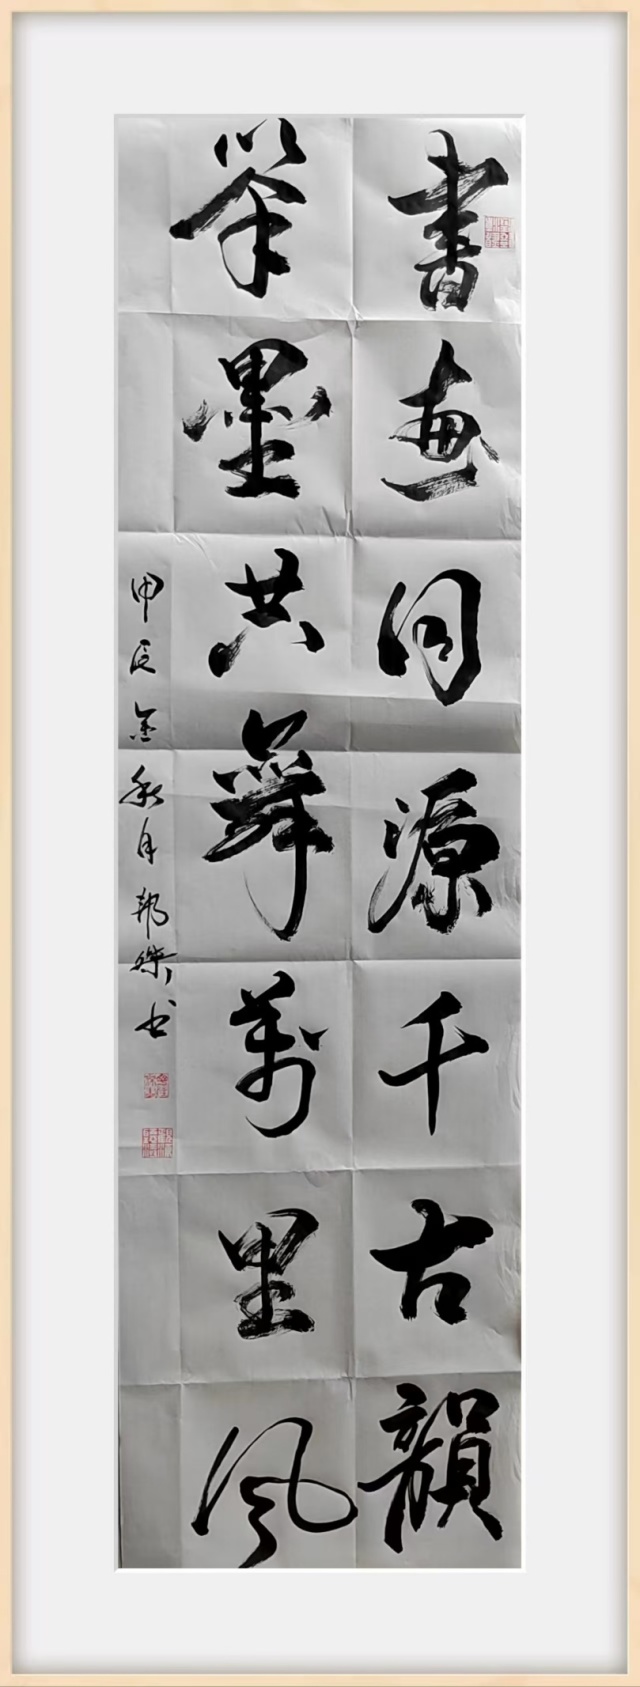 書畫同源千古韻
筆墨共舞萬里風
甲辰金秋月 邦傑书